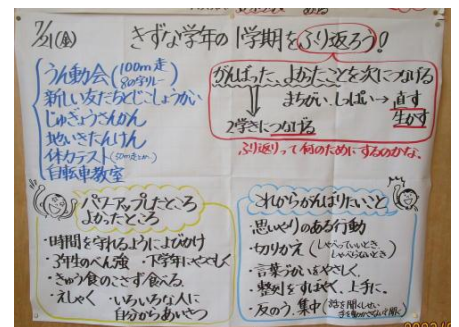 7/21(金)
きずな学年の1学期をふり返ろう!
うん動会(100m走
80mリレー)
新しい友だちとじこしょうかい
じゅぎょうさんかん
地いきたんけん
体力テスト(50m走etc.)
自転車教室
がんばった、よかったことを次につなげる
まちがい、しっぱい→直す
生かす
2学きにつなげる
ふり返りって何のためにするのかな。
パワーアップしたところ
よかったところ
・時間を守れるようによびかけ
・3年生のべん強・下学年にやさしく
・きゅう食のこさず食べる。
・えしゃく・いろいろな人に
自分からあいさつ
これからがんばりたいこと
・思いやりのある行動
・切りかえ(しゃべっていいとき、
しゃべらないとき)
・言葉づかいはやさしく。
・整列をすばやく、上手に。
・友のう、集中(話を聞くしせい